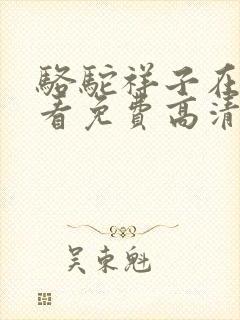 駱駝祥子在
看免費高清
吴東魁